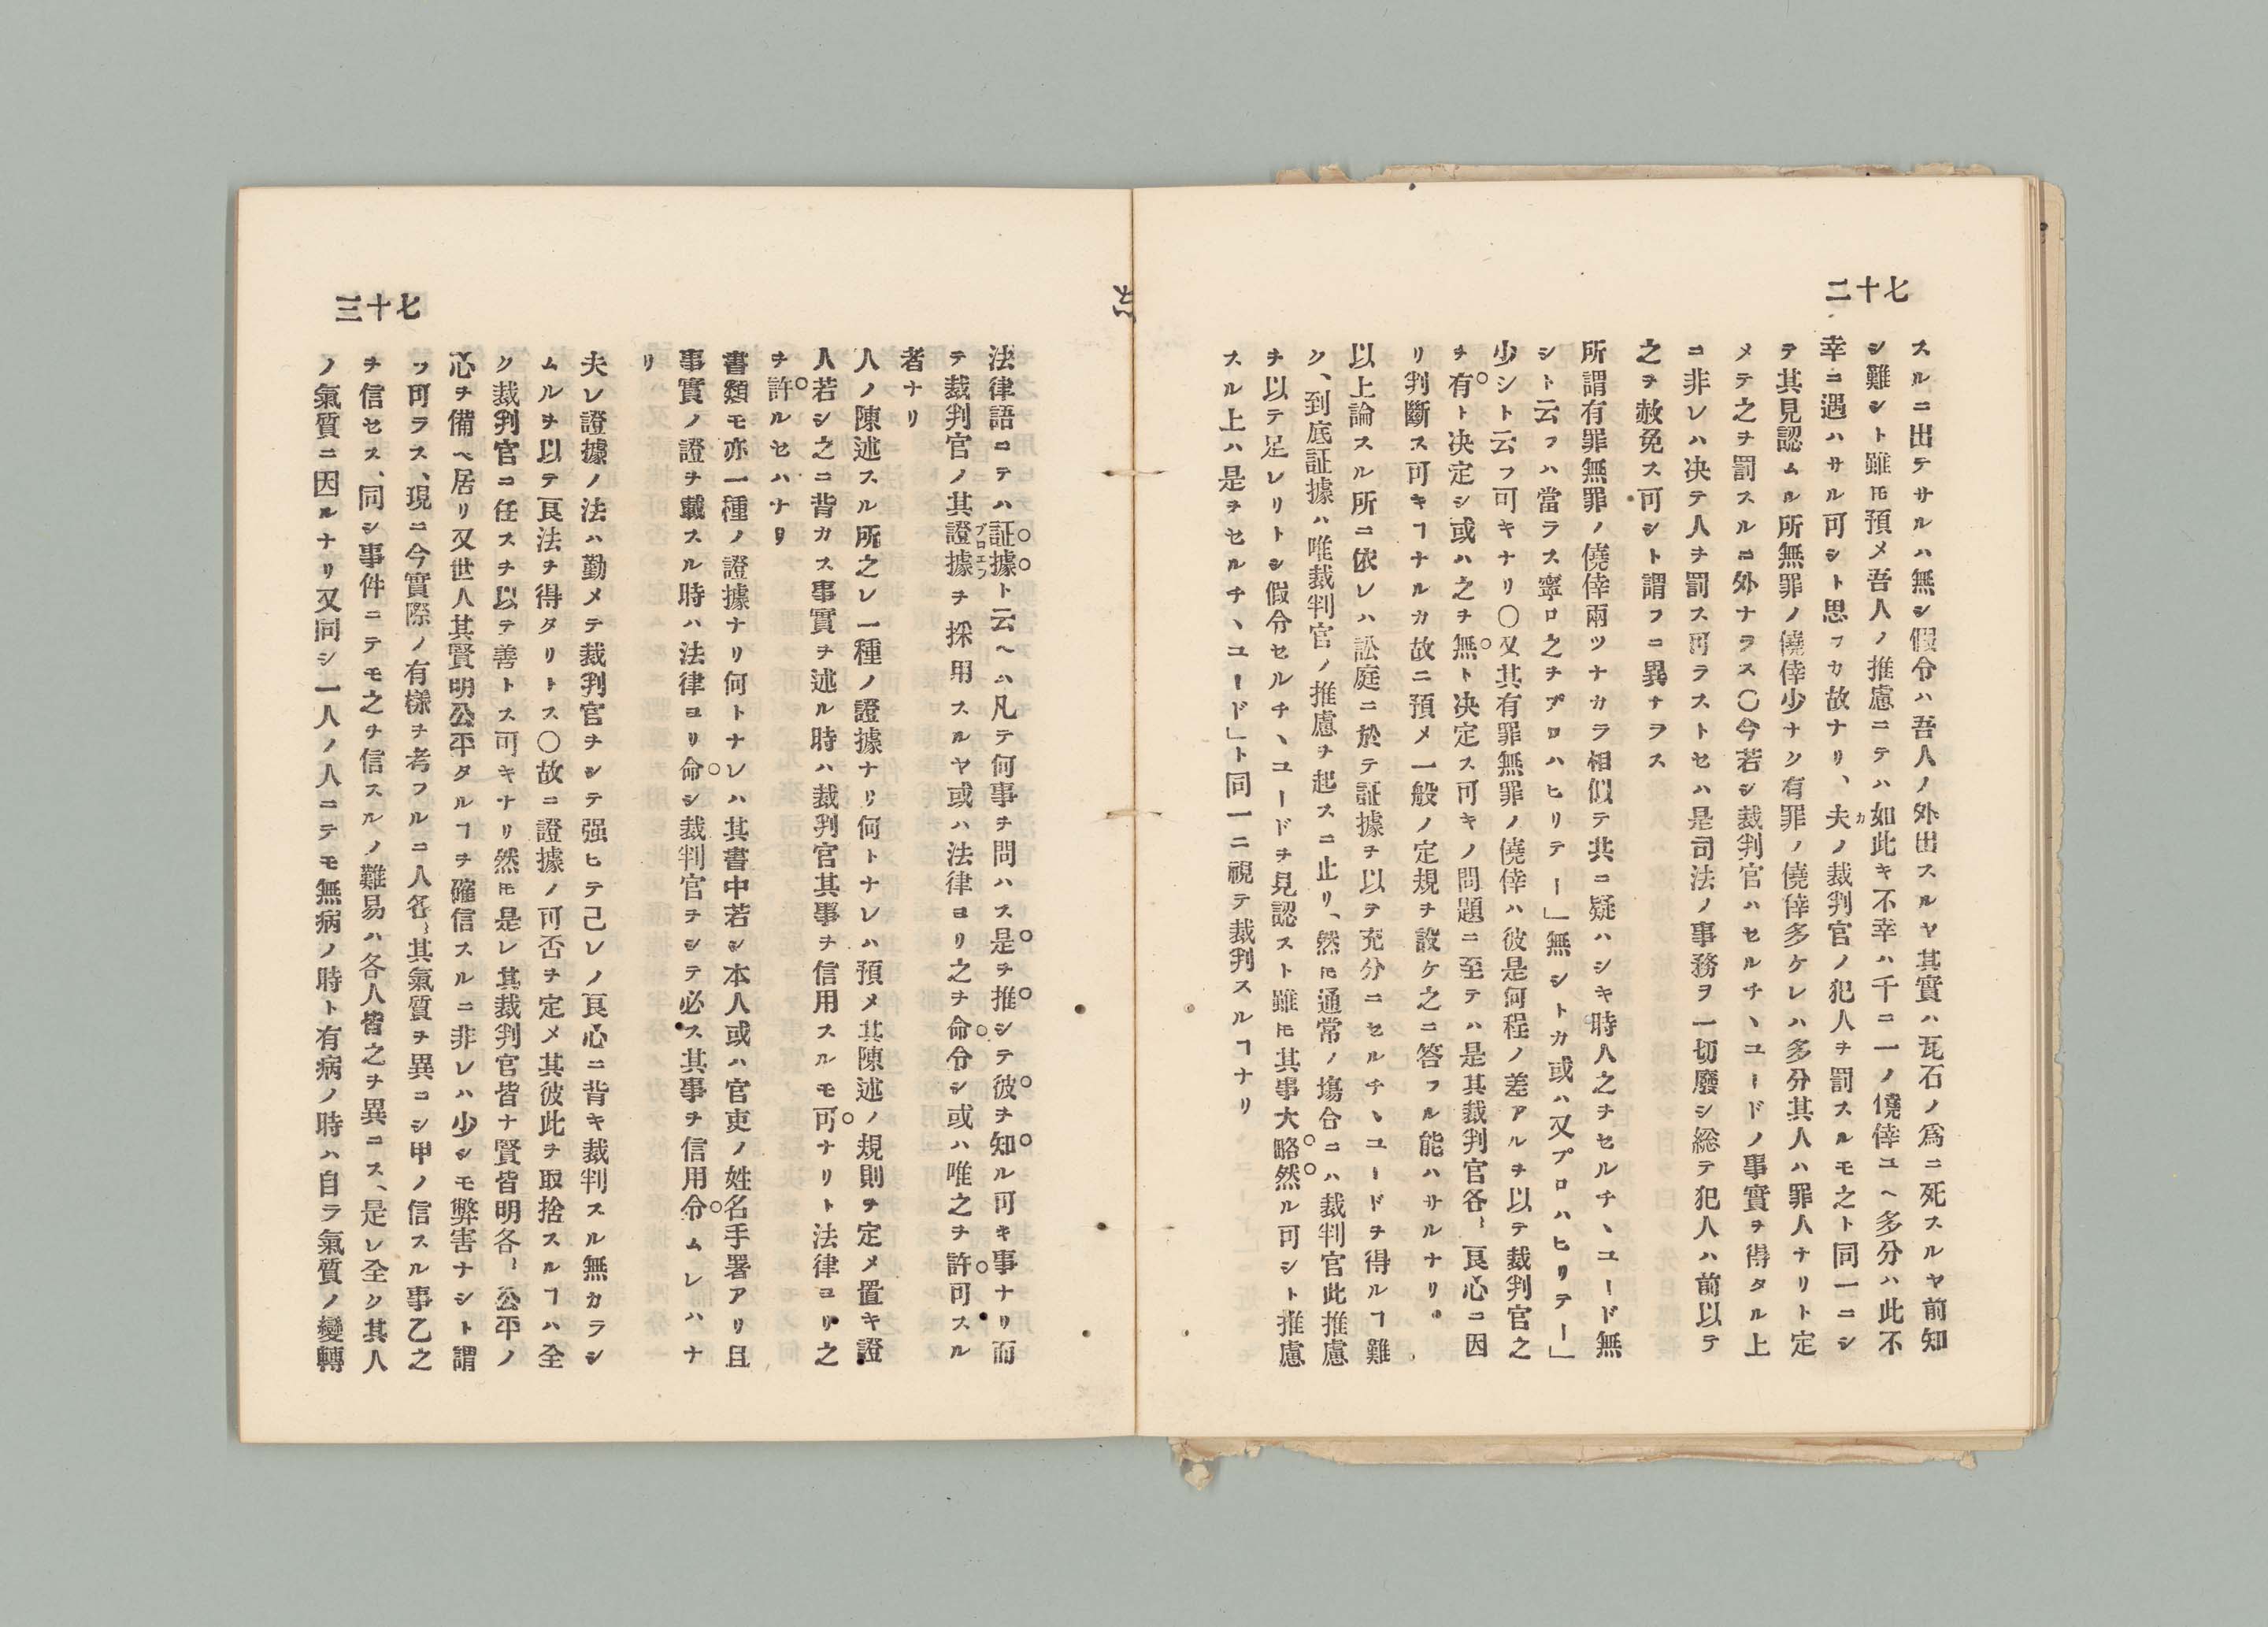 七十二
スルニ出テサルハ無シ假令ハ吾人ノ外出スルヤ其實ハ瓦石ノ爲ニ死スルヤ前知
シ難シト雖モ預メ吾人ノ推慮ニテハ如此キ不幸ハ千ニ一ノ僥倖ユヘ多分ハ此不
幸ニ遇ハサル可シト思フカ故ナリ、夫ノ裁判官ノ犯人ヲ罰スルモ之ト同一ニシ
テ其見認ムル所無罪ノ僥倖少ナク有罪ノ僥倖多ケレハ多分其人ハ罪人ナリト定
メテ之ヲ罰スルニ外ナラス〇今若シ裁判官ハセルチヽユードノ事實ヲ得タル上
ニ非レハ决テ人ヲ罰ス可ラストセハ是司法ノ事務ヲ一切廢シ総テ犯人ハ前以テ
之ヲ赦免ス可シト謂フニ異ナラス
所謂有罪無罪ノ僥倖兩ツナカラ相似テ共ニ疑ハシキ時人之ヲセルチヽユード無
シト云フハ當ラス寧ロ之ヲプロハヒリテー」無シトカ或ハ又プロハヒリテー」
少シト云フ可キナリ〇又其有罪無罪ノ僥倖ハ彼是何程ノ差アルヲ以テ裁判官之
ヲ有ト决定シ或ハ之ヲ無ト决定ス可キノ問題ニ至テハ是其裁判官各〻良心ニ因
リ判斷ス可キヿナルカ故ニ預メ一般ノ定規ヲ設ケ之ニ答フル能ハサルナリ。
以上論スル所ニ依レハ訟庭ニ於テ証據ヲ以テ充分ニセルチヽユードヲ得ルヿ難
ク、到底証據ハ唯裁判官ノ推慮ヲ起スニ止リ、然モ通常ノ塲合ニハ裁判官此推慮
ヲ以テ足レリトシ假令セルチヽユードヲ見認スト雖モ其事大略然ル可シト推慮
スル上ハ是ヲセルチヽユード」ト同一ニ視テ裁判スルヿナリ
七十三
法律語ニテハ証據ト云ヘハ凡テ何事ヲ問ハス是ヲ推シテ彼ヲ知ル可キ事ナリ而
テ裁判官ノ其證據ヲ採用スルヤ或ハ法律ヨリ之ヲ命令シ或ハ唯之ヲ許可スル
者ナリ
人ノ陳述スル所之レ一種ノ證據ナリ何トナレハ預メ其陳述ノ規則ヲ定メ置キ證
人若シ之ニ背カス事實ヲ述ル時ハ裁判官其事ヲ信用スルモ可ナリト法律ヨリ之
ヲ許ルセハナリ
書類モ亦一種ノ證據ナリ何トナレハ其書中若シ本人或ハ官吏ノ姓名手署アリ且
事實ノ證ヲ載スル時ハ法律ヨリ命シ裁判官ヲシテ必ス其事ヲ信用令ムレハナ
リ
夫レ證據ノ法ハ勤メテ裁判官ヲシテ强ヒテ己レノ良心ニ背キ裁判スル無カラシ
ムルヲ以テ良法ヲ得タリトス〇故ニ證據ノ可否ヲ定メ其彼此ヲ取捨スルヿハ全
ク裁判官ニ任スヲ以テ善トス可キナリ然モ是レ其裁判官皆ナ賢皆明各〻公平ノ
心ヲ備ヘ居リ又世人其賢明公平タルヿヲ確信スルニ非レハ少シモ弊害ナシト謂
フ可ラス、現ニ今實際ノ有樣ヲ考フルニ人各〻其氣質ヲ異ニシ甲ノ信スル事乙之
ヲ信セス、同シ事件ニテモ之ヲ信スルノ難易ハ各人皆之ヲ異ニス、是レ全ク其人
ノ氣質ニ因ルナリ又同シ一人ノ人ニテモ無病ノ時ト有病ノ時ハ自ラ氣質ノ變轉